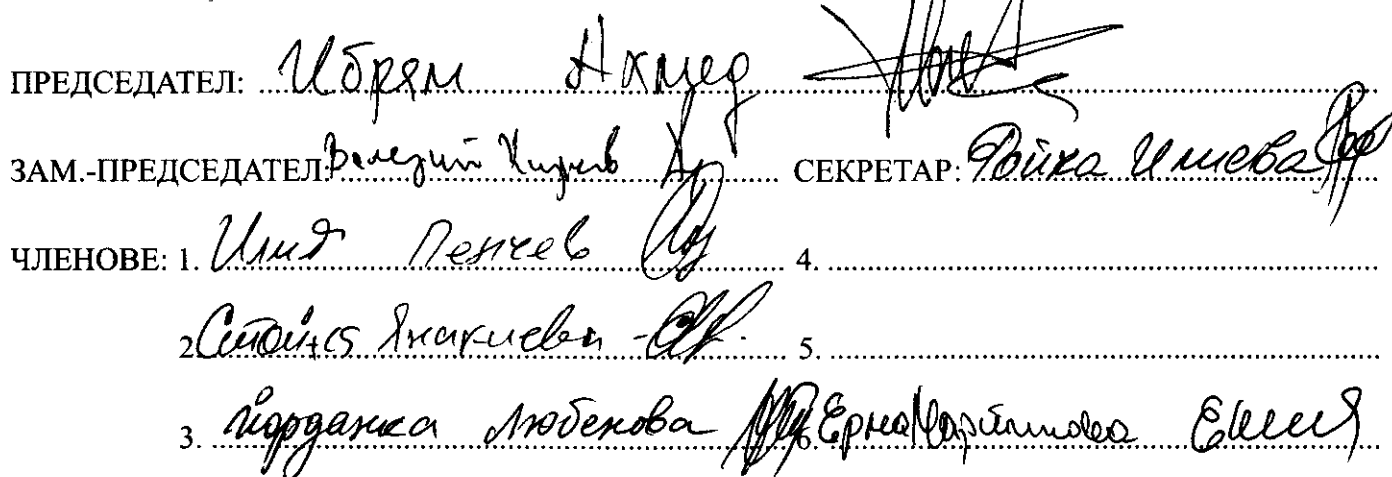 ПРЕДСЕДАТЕЛ: Ибрям Ахмед
ЗАМ.-ПРЕДСЕДАТЕЛ: Валерий СЕКРЕТАР: Ройка Илиева
ЧЛЕНОВЕ: 1. Илия Пенчев 4.
2. Стойка Янакиева 5.
3. Йорданка Любенова Ерна